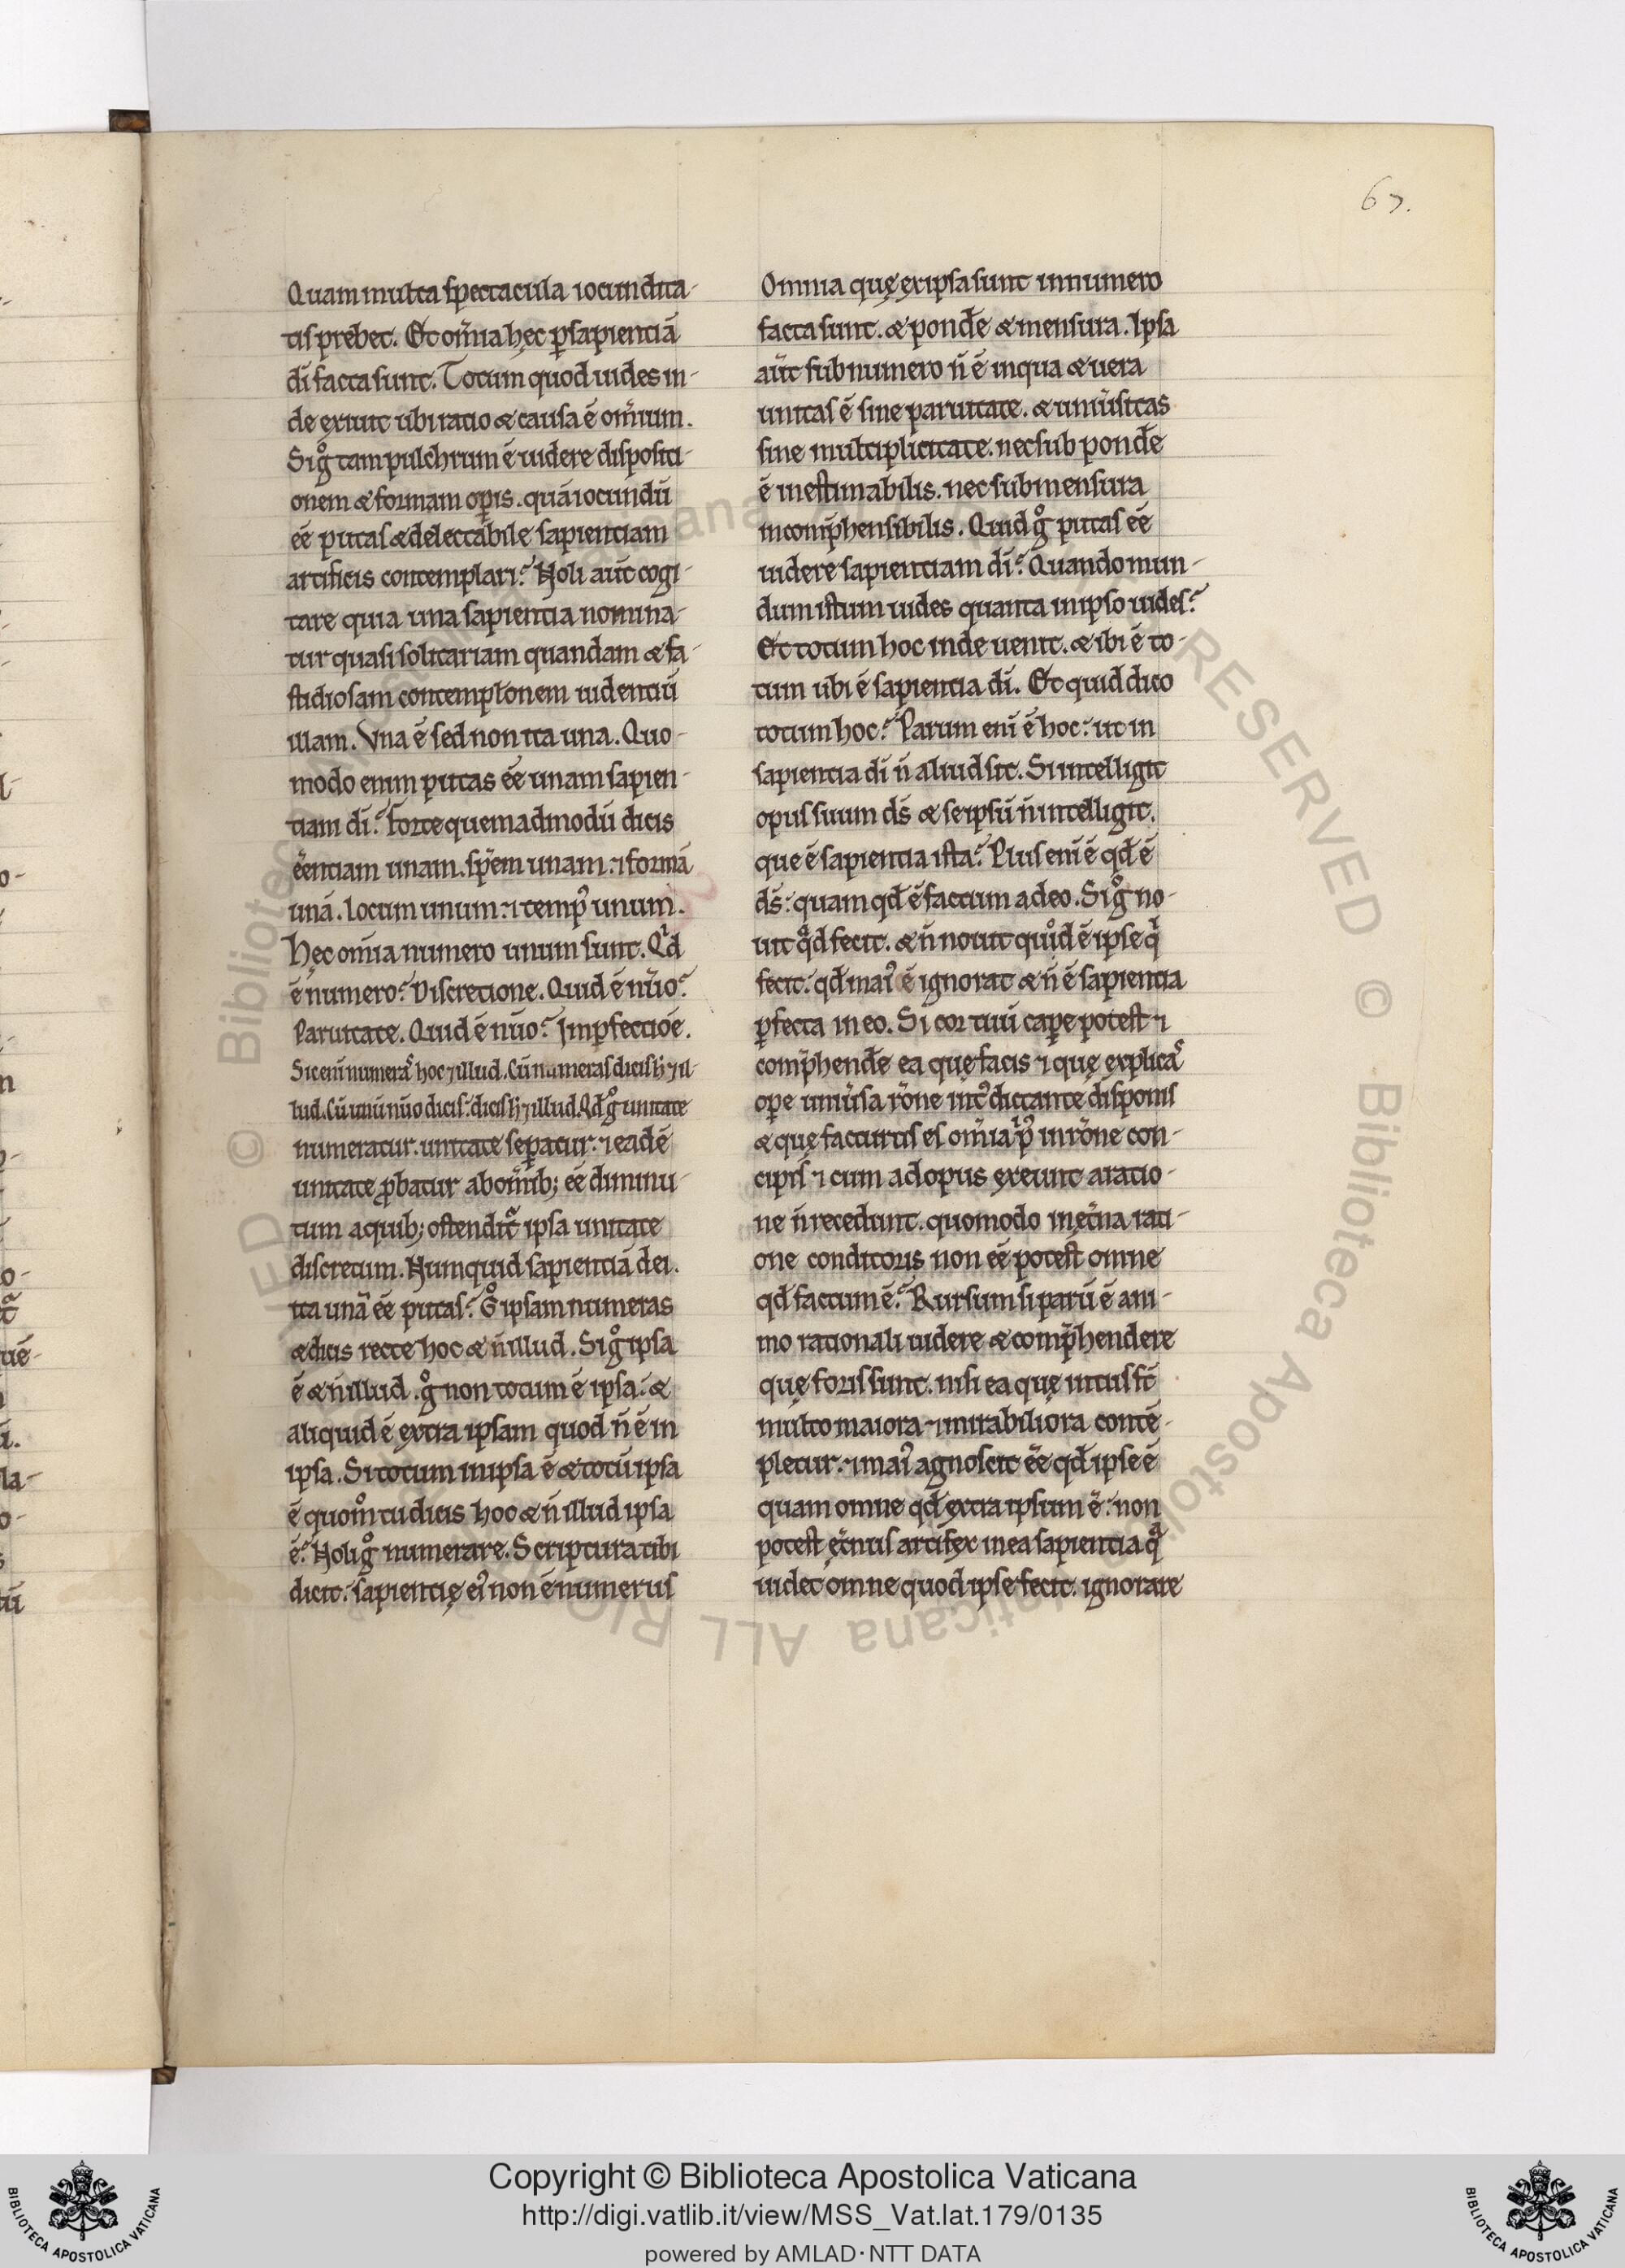 67.
Quam multa spectacula iocundita-
tis prebet. Et om̄ia hęc ꝑ sapientiā
dī facta sunt. Totum quod uides in-
de exiuit ubi ratio & causa ē om̄ium.
Si gͦ tam pulchrum ē uidere dispositi-
onem & formam oꝑis. quā iocundū
eē putas & delectabile sapientiam
artificis contemplari? Noli aūt cogi-
tare quia una sapientia nomina-
tur quasi solitariam quandam & fa-
stidiosam contemptōnem uidentiū
illam. Vna ē sed non ita una. Quo-
modo enim putas eē unam sapien-
tiam dī? forte quemadmodū dicis
eēntiam unam. spēm unam. ⁊ formā
unā. locum unum. ⁊ tempꝰ unum.
Hęc om̄ia numero unum sunt. Qͥd
ē numero? Discretione. Quid ē nūo?
Paruitate. Quid ē nūo? Imꝑfectiōe.
Sic enī numeraͬ hoc ⁊ illud. Cū numeras dicis h̄ ⁊ il-
lud. Cū unū nūo dicis. dicis h̄ ⁊ illud. Qd̄ gͦ unitate
numeratur. unitate seꝑatur. ⁊ eadē
unitate ꝓbatur ab om̄ib; eē diminu-
tum a quib; ostendit᷑ ipsa unitate
discretum. Numquid sapientiā dei.
ita unā eē putas? Gͦ ipsam numeras
& dicis recte hoc & n̄ illud. Si gͦ ipsa
ē & n̄ illud. gͦ non totum ē ipsa. &
aliquid ē extra ipsam quod n̄ ē in
ipsa. Si totum in ipsa ē & totū ipsa
ē quom̊ tu dicis hoc & n̄ illud ipsa
ē? Noli gͦ numerare. Scriptura tibi
dicit. sapientię eiꝰ non ē numerus
Omnia quę ex ipsa sunt in numero
facta sunt. & pondē & mensura. Ipsa
aūt sub numero n̄ ē in qua & uera
unitas ē sine paruitate. & uniūsitas
sine multiplicitate. nec sub pondē
ē inestimabilis. nec sub mensura
incomp̄hensibilis. Quid gͦ putas eē
uidere sapientiam dī? Quando mun-
dum istum uides quanta in ipso uides?
Et totum hoc inde uenit. & ibi ē to-
tum ubi ē sapientia dī. Et quid dico
totum hoc? Parum enī ē hoc. ut in
sapientia dī n̄ aliud sit. Si intelligit
opus suum ds̄ & se ipsū n̄ intelligit.
que ē sapientia ista? Plus enī ē qd̄ ē
ds̄. quam qd̄ ē factum a deo. Si gͦ no-
uit qͣd fecit. & n̄ nouit quͦd ē ipse qͥ
fecit. qd̄ maiꝰ ē ignorat & n̄ ē sapientia
ꝑfecta in eo. Si cor tuū caꝑe potest ⁊
comp̄hendē ea quę facis ⁊ quę explicaͬ
oꝑe uniūsa rōne intꝰ dictante disponis
& quę facturus es om̄ia pͥꝰ in rōne con-
cipis ⁊ cum ad opus exeunt a ratio-
ne n̄ recedunt. quomodo in ęt̄na rati-
one conditoris non eē potest omne
qd̄ factum ē? Rursum si parū ē ani-
mo rationali uidere & comp̄hendere
quę foris sunt. nisi ea quę intus st̄
multo maiora ⁊ mirabiliora contē-
pletur. ⁊ maiꝰ agnoscit eē qd̄ ipse ē
quam omne qd̄ extra ipsum ē. non
potest ęt̄nus artifex in ea sapientia qͣ
uidet omne quod ipse fecit. ignorare
Copyright © Biblioteca Apostolica Vaticana
http://digi.vatlib.it/view/MSS_Vat.lat.179/0135
powered by AMLAD·NTT DATA
BIBLIOTECA APOSTOLICA VATICANA
BIBLIOTECA APOSTOLICA VATICANA